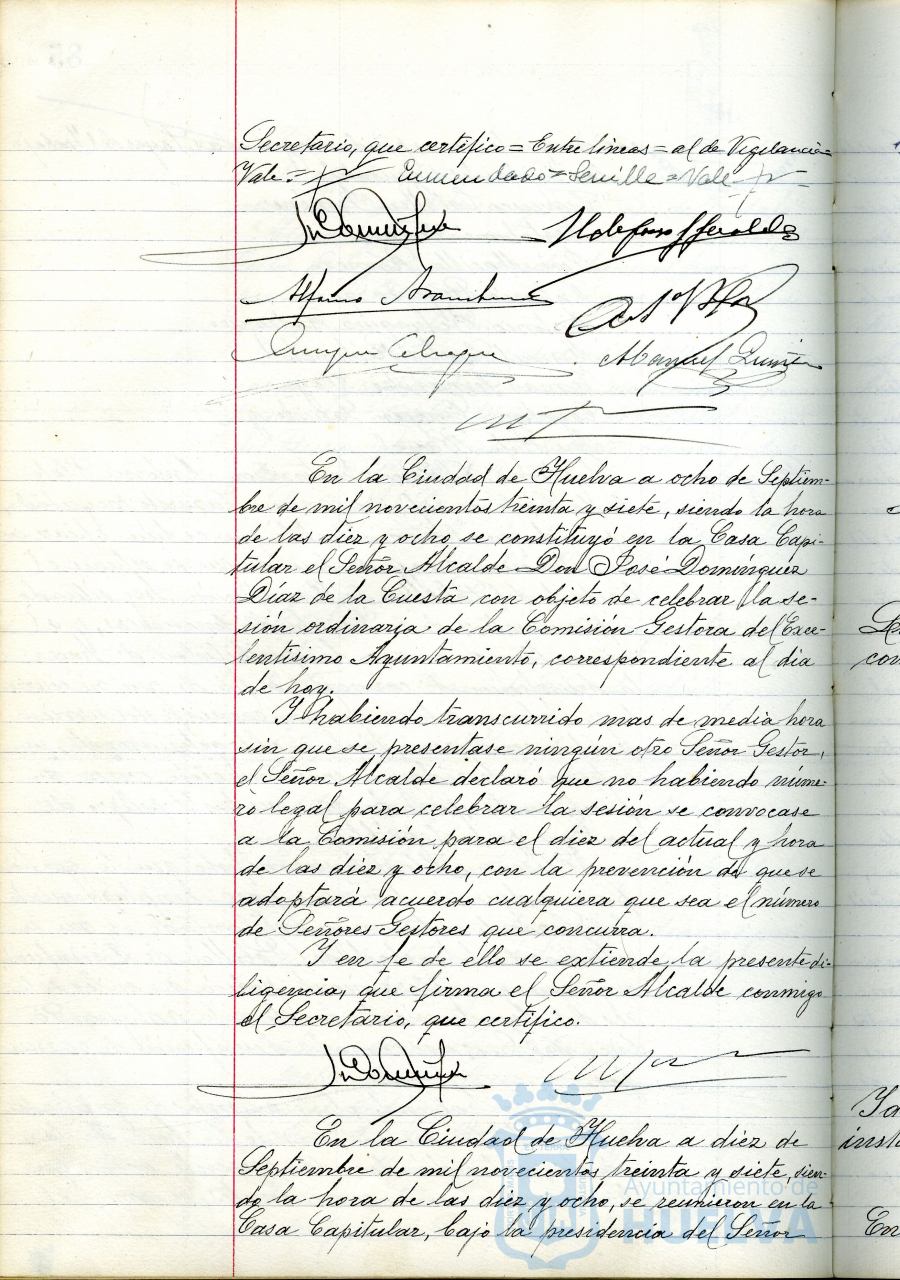 Secretario, que certifico = Entre lineas = al de Vigilancia =
Vale = Enmendado = Sevilla = Vale =
Ildefonso
Alfonso
Enrique
Manuel
En la Ciudad de Huelva a ocho de Septiem-
bre de mil novecientos treinta y siete, siendo la hora
de las diez y ocho se constituyó en la Casa Capi-
tular el Señor Alcalde Don José Domínguez
Díaz de la Cuesta con objeto de celebrar la se-
sión ordinaria de la Comisión Gestora del Exce-
lentísimo Ayuntamiento, correspondiente al dia
de hoy.
Y habiendo transcurrido mas de media hora
sin que se presentase ningún otro Señor Gestor,
el Señor Alcalde declaró que no habiendo núme-
ro legal para celebrar la sesión se convocase
a la Comisión para el diez del actual y hora
de las diez y ocho, con la prevención de que se
adoptará acuerdo cualquiera que sea el número
de Señores Gestores que concurra.
Y en fe de ello se extiende la presente di-
ligencia, que firma el Señor Alcalde conmigo
el Secretario, que certifico.
En la Ciudad de Huelva a diez de
Septiembre de mil novecientos treinta y siete, sien-
do la hora de las diez y ocho, se reunieron en la
Casa Capitular, bajo la presidencia del Señor
Ayuntamiento de
HUELVA